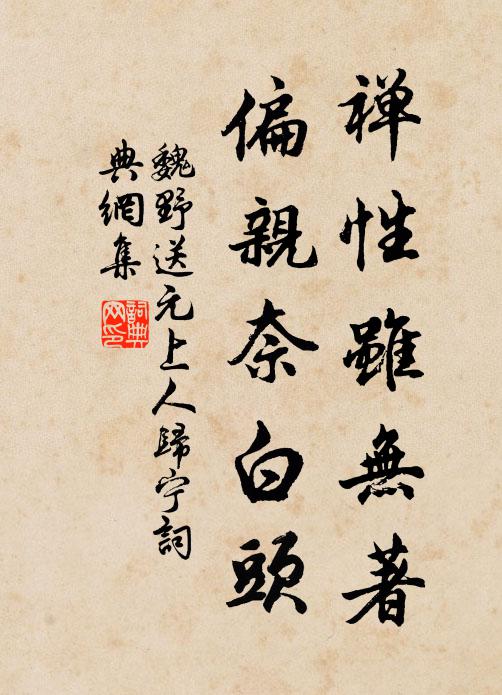 禅性雖無著
偏親奈白頭
魏野送元上人歸宁詞
典網集
詞典网印